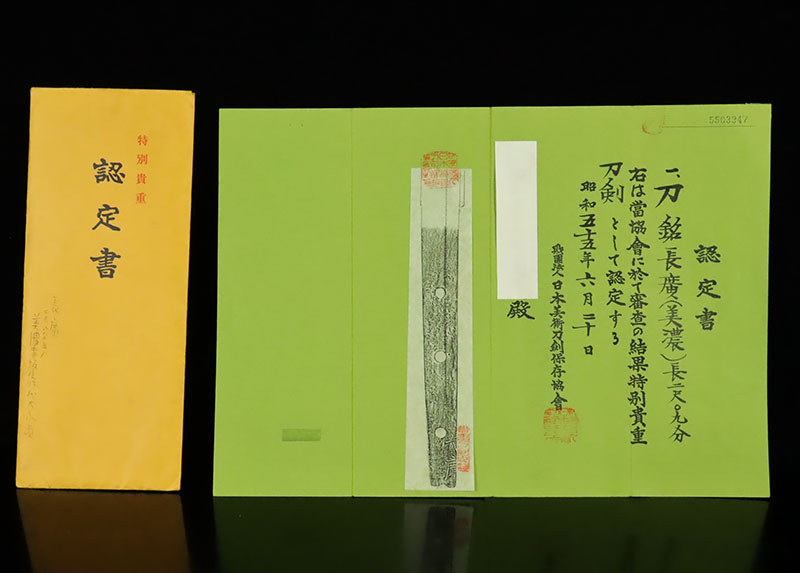 特別貴重
認定書
5503947
認定書
一、刀 銘 長廣(美濃) 長二尺〇九分
右は當協會に於て審査の結果特別貴重
刀剣 として認定する
昭和五十五年六月二十日
財團法人 日本美術刀剣保存協會
殿